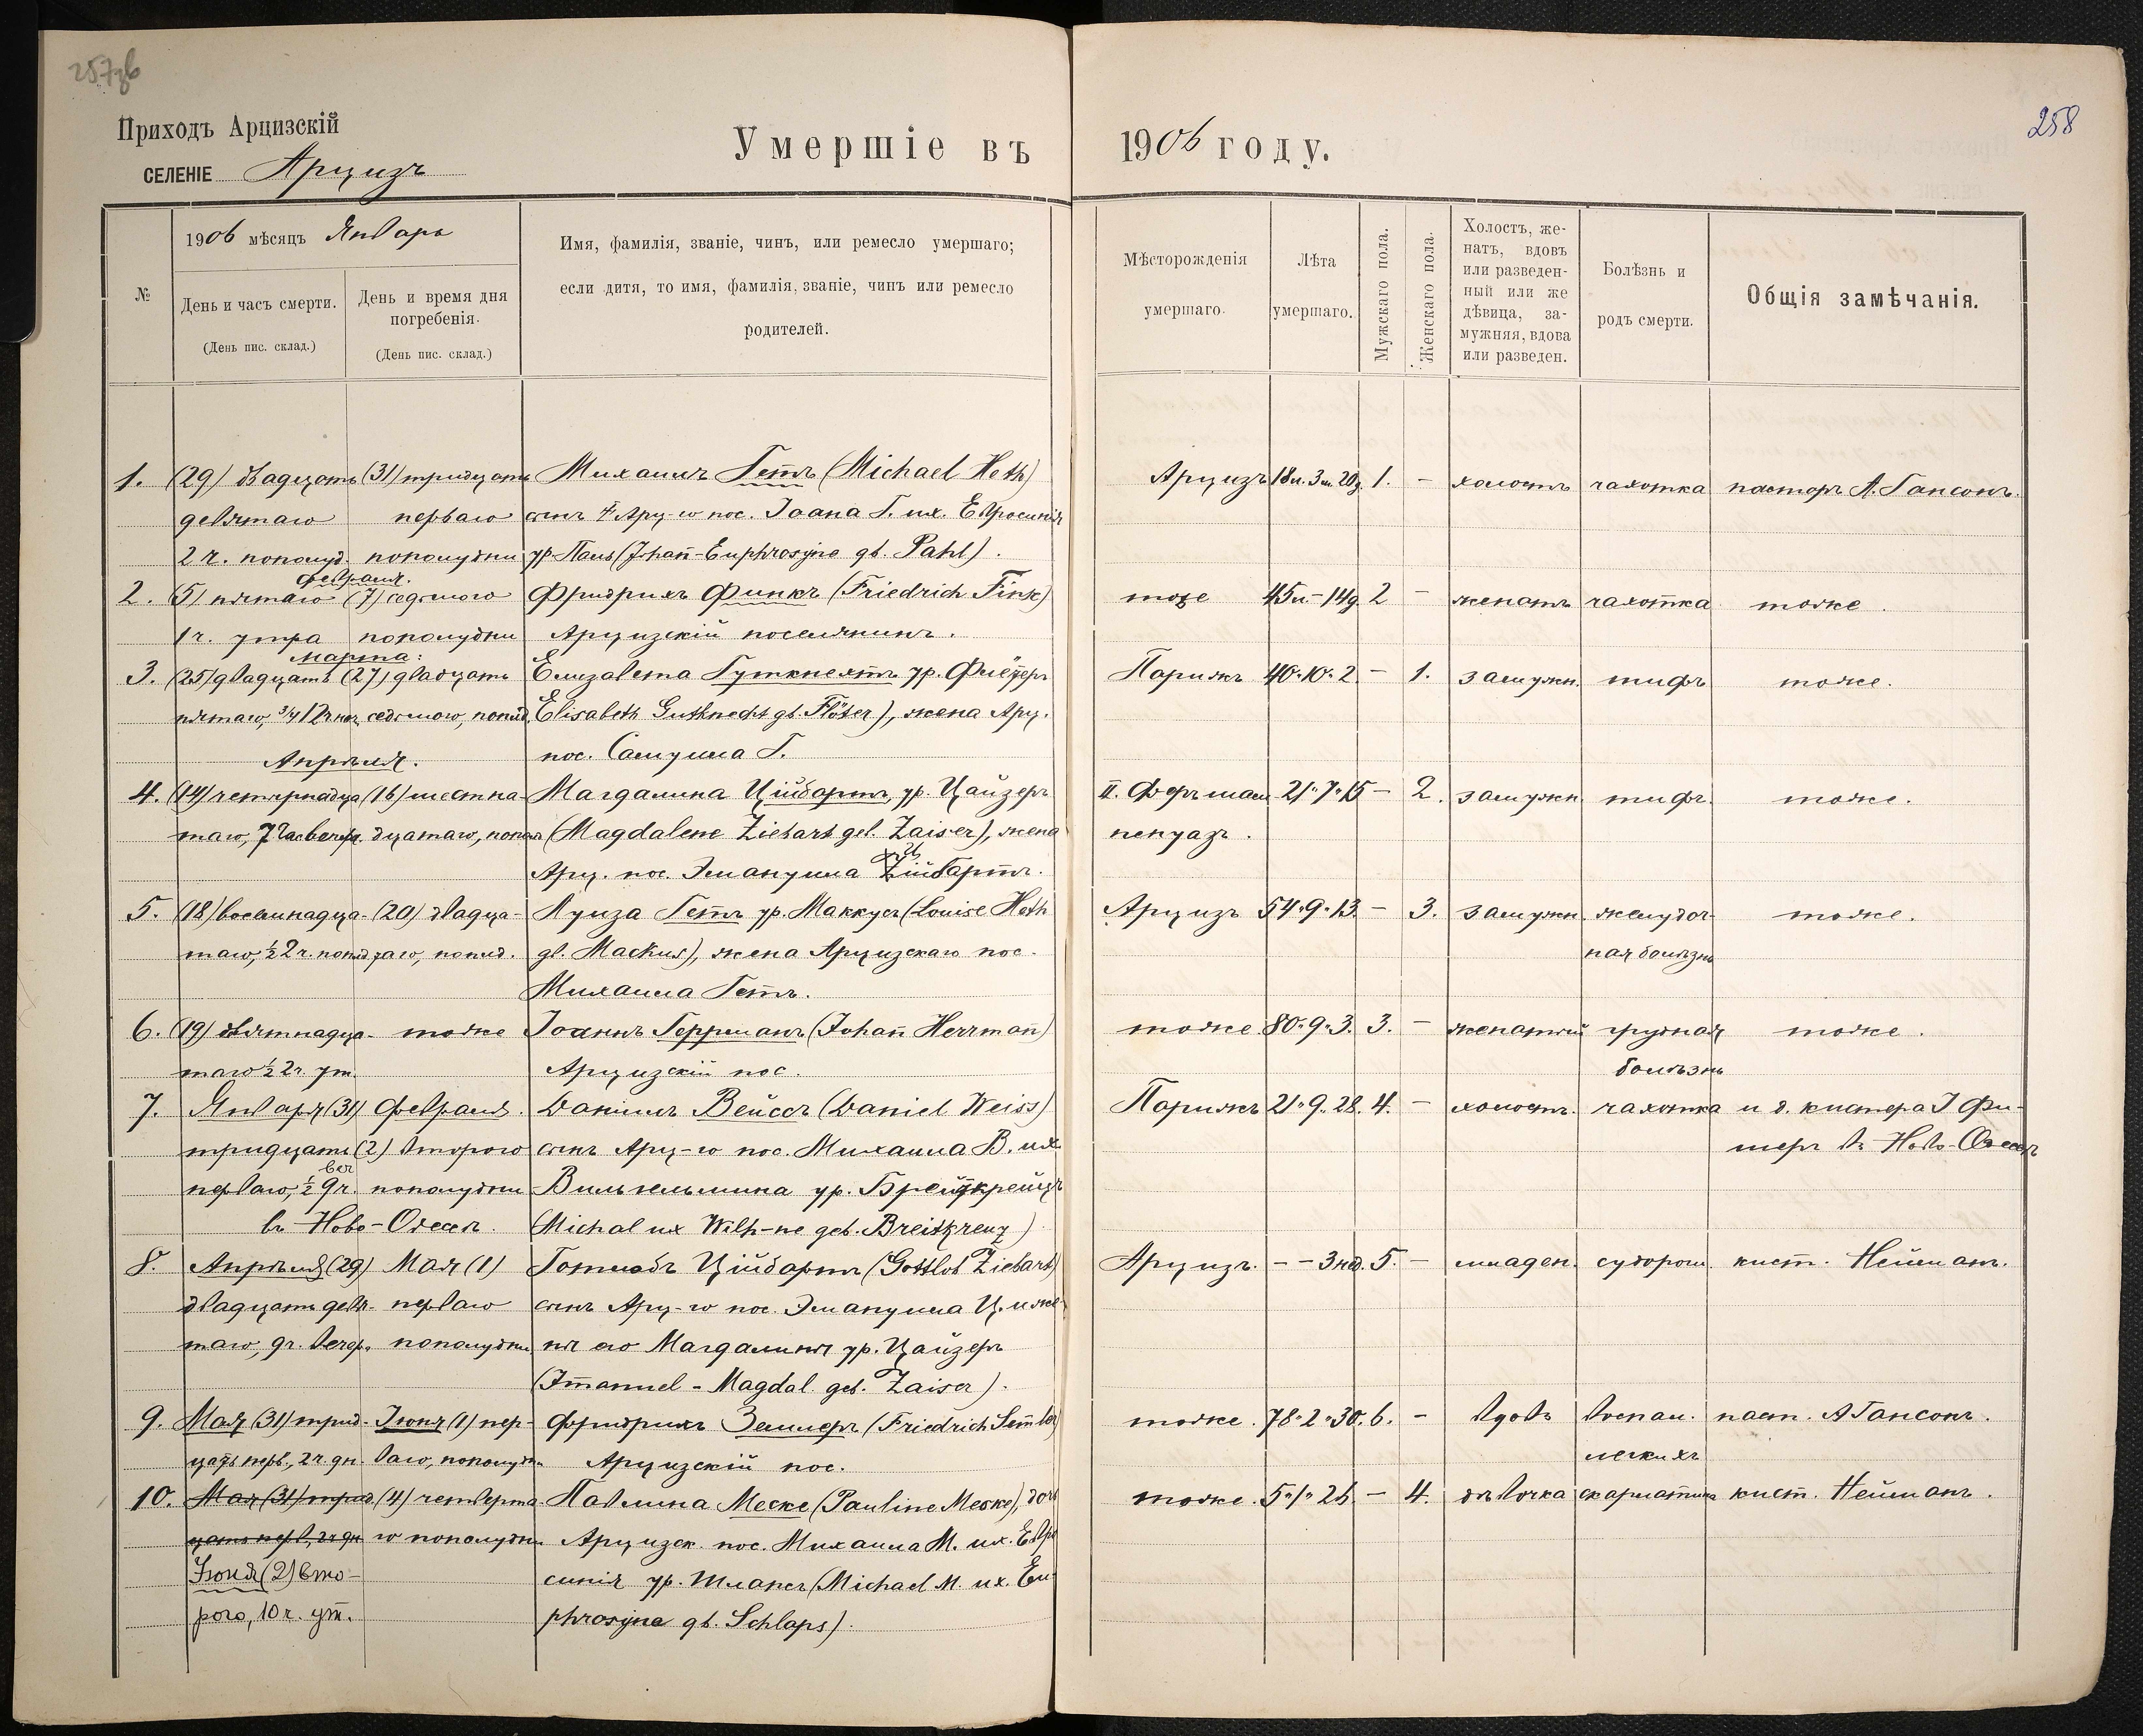 257зв
258
Приходъ Арцизскій
СЕЛЕНІЕ Арцизъ
Умершіе въ 1906 году.
№
1906 мѣсяцъ Январь
День и часъ смерти.
(День пис. склад.)
День и время дня
погребенія.
(День пис. склад.)
Имя, фамилія, званіе, чинъ, или ремесло умершаго;
если дитя, то имя, фамилія, званіе, чинъ или ремесло
родителей.
Мѣсторожденія
умершаго.
Лѣта
умершаго.
Мужскаго пола.
Женскаго пола.
Холостъ, же-
натъ, вдовъ
или разведен-
ный или же
дѣвица, за-
мужняя, вдова
или разведен.
Болѣзнь и
родъ смерти.
Общія замѣчанія.
1. (29) двадцать (31) тридцать Михаилъ Гетъ (Michael Heth) Арцизъ 18л. 3м. 20д. 1. – холостъ чахотка пасторъ А. Гансонъ.
девятаго перваго сынъ Арц-го пос. Іоана Г. их. Евфосинія
2 ч. пополуд. пополудни ур. Паль (Johañ-Euphrosyne gb. Pahl).
Февраля.
2. (5) пятаго (7) седьмого Фридрихъ Финкъ (Friedrich Fink) тоже 45л.–14д. 2 – женатъ чахотка тоже.
1 ч. утра пополудни Арцизскій поселянинъ.
Марта:
3. (25) двадцать (27) двадцать Елизавета Гуткнехтъ ур. Флётеръ Парижъ 40"10"2 – 1. замужн. тифъ тоже.
пятаго, 3/4 12 ч. седьмого, попол. Elisabeth Gutknecht gb. Flöter), жена Арц.
пос. Самуила Г.
Апрѣля.
4. (14) четырнадца (16) шестна- Магдалина Ційбартъ, ур. Цайзеръ II. Фершам 21"7"15 – 2. замужн. тифъ. тоже.
таго, 7 час вечер. дцатаго, попол (Magdalene Ziebart geb. Zaiser), жена пенуазъ.
Арц. пос. Эмануила Ційбартъ.
5. (18) восемнадца- (20) двадца- Луиза Гетъ ур. Маккусъ (Louise Heth Арцизъ 54"9"13. – 3. замужн. желудоч- тоже.
таго, ½ 2 ч. попол. таго, попол. gb. Mackus), жена Арцизскаго пос. ная болѣзнь
Михаила Гетъ.
6. (19) девятнадца- тоже Іоаннъ Геррманъ (Johañ Herrmañ) тоже. 80"9"3. 3. – женатый грудная тоже.
таго ½ 2 ч. ут. Арцизскій пос. болѣзнь
7. Января (31) Февраля. Даніилъ Вейссъ (Daniel Weiss) Парижъ 21"9"28. 4. – холостъ. чахотка и д. кистера І Фи-
тридцать (2) второго сынъ Арц-го пос. Михаила В. их шеръ въ Ново-Одессѣ
перваго, ½ 9 ч. веч пополудни Вильгельмина ур. Брейткрейцъ
въ Ново-Одессѣ. (Michal их Wilh-ne geb. Breitkreuz)
8. Апрѣля (29) Мая (1) Готлобъ Ційбартъ (Gottlob Ziebart) Арцизъ. – – 3 нед. 5. – младен. судороги кист. Нейманъ.
двадцать девя- перваго сынъ Арц-го пос. Эмануила Ц. и же-
таго, 9 ч. вечер. пополудни ны его Магдалины ур. Цайзеръ
(Im̄anuel - Magdal. geb. Zaiser).
9. Мая (31) трид- Іюня (1) пер- Фридрихъ Земмлеръ (Friedrich Sem̄ler) тоже. 78"2"30. 6. – вдовъ воспал. паст. А Гансонъ.
цать перв., 2 ч. дн. ваго, пополудн. Арцизскій пос. легкихъ
10. Мая (31) трид (4) четверта- Павлина Меске (Pauline Meske), доч тоже. 5"1"26 – 4. дѣвочка скарлатина кист. Нейманъ.
цать перв., 2 ч. дн го пополудни Арцизск. пос. Михаила М. их. Евфро
Іюня (2) вто- синія ур. Шлапсъ (Michael M. их. Eu-
рого, 10 ч. ут. phrosyne gb. Schlaps).